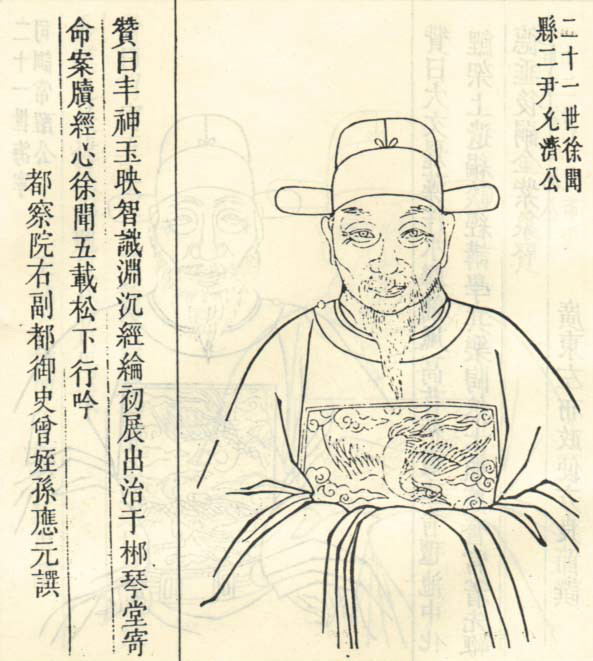 二十一世徐聞
縣二尹允濟公
贊曰丰神玉映智識淵沉經綸初展出治于郴琴堂寄
命案牘經心徐聞五載松下行吟
都察院右副都御史曾姪孫應元譔